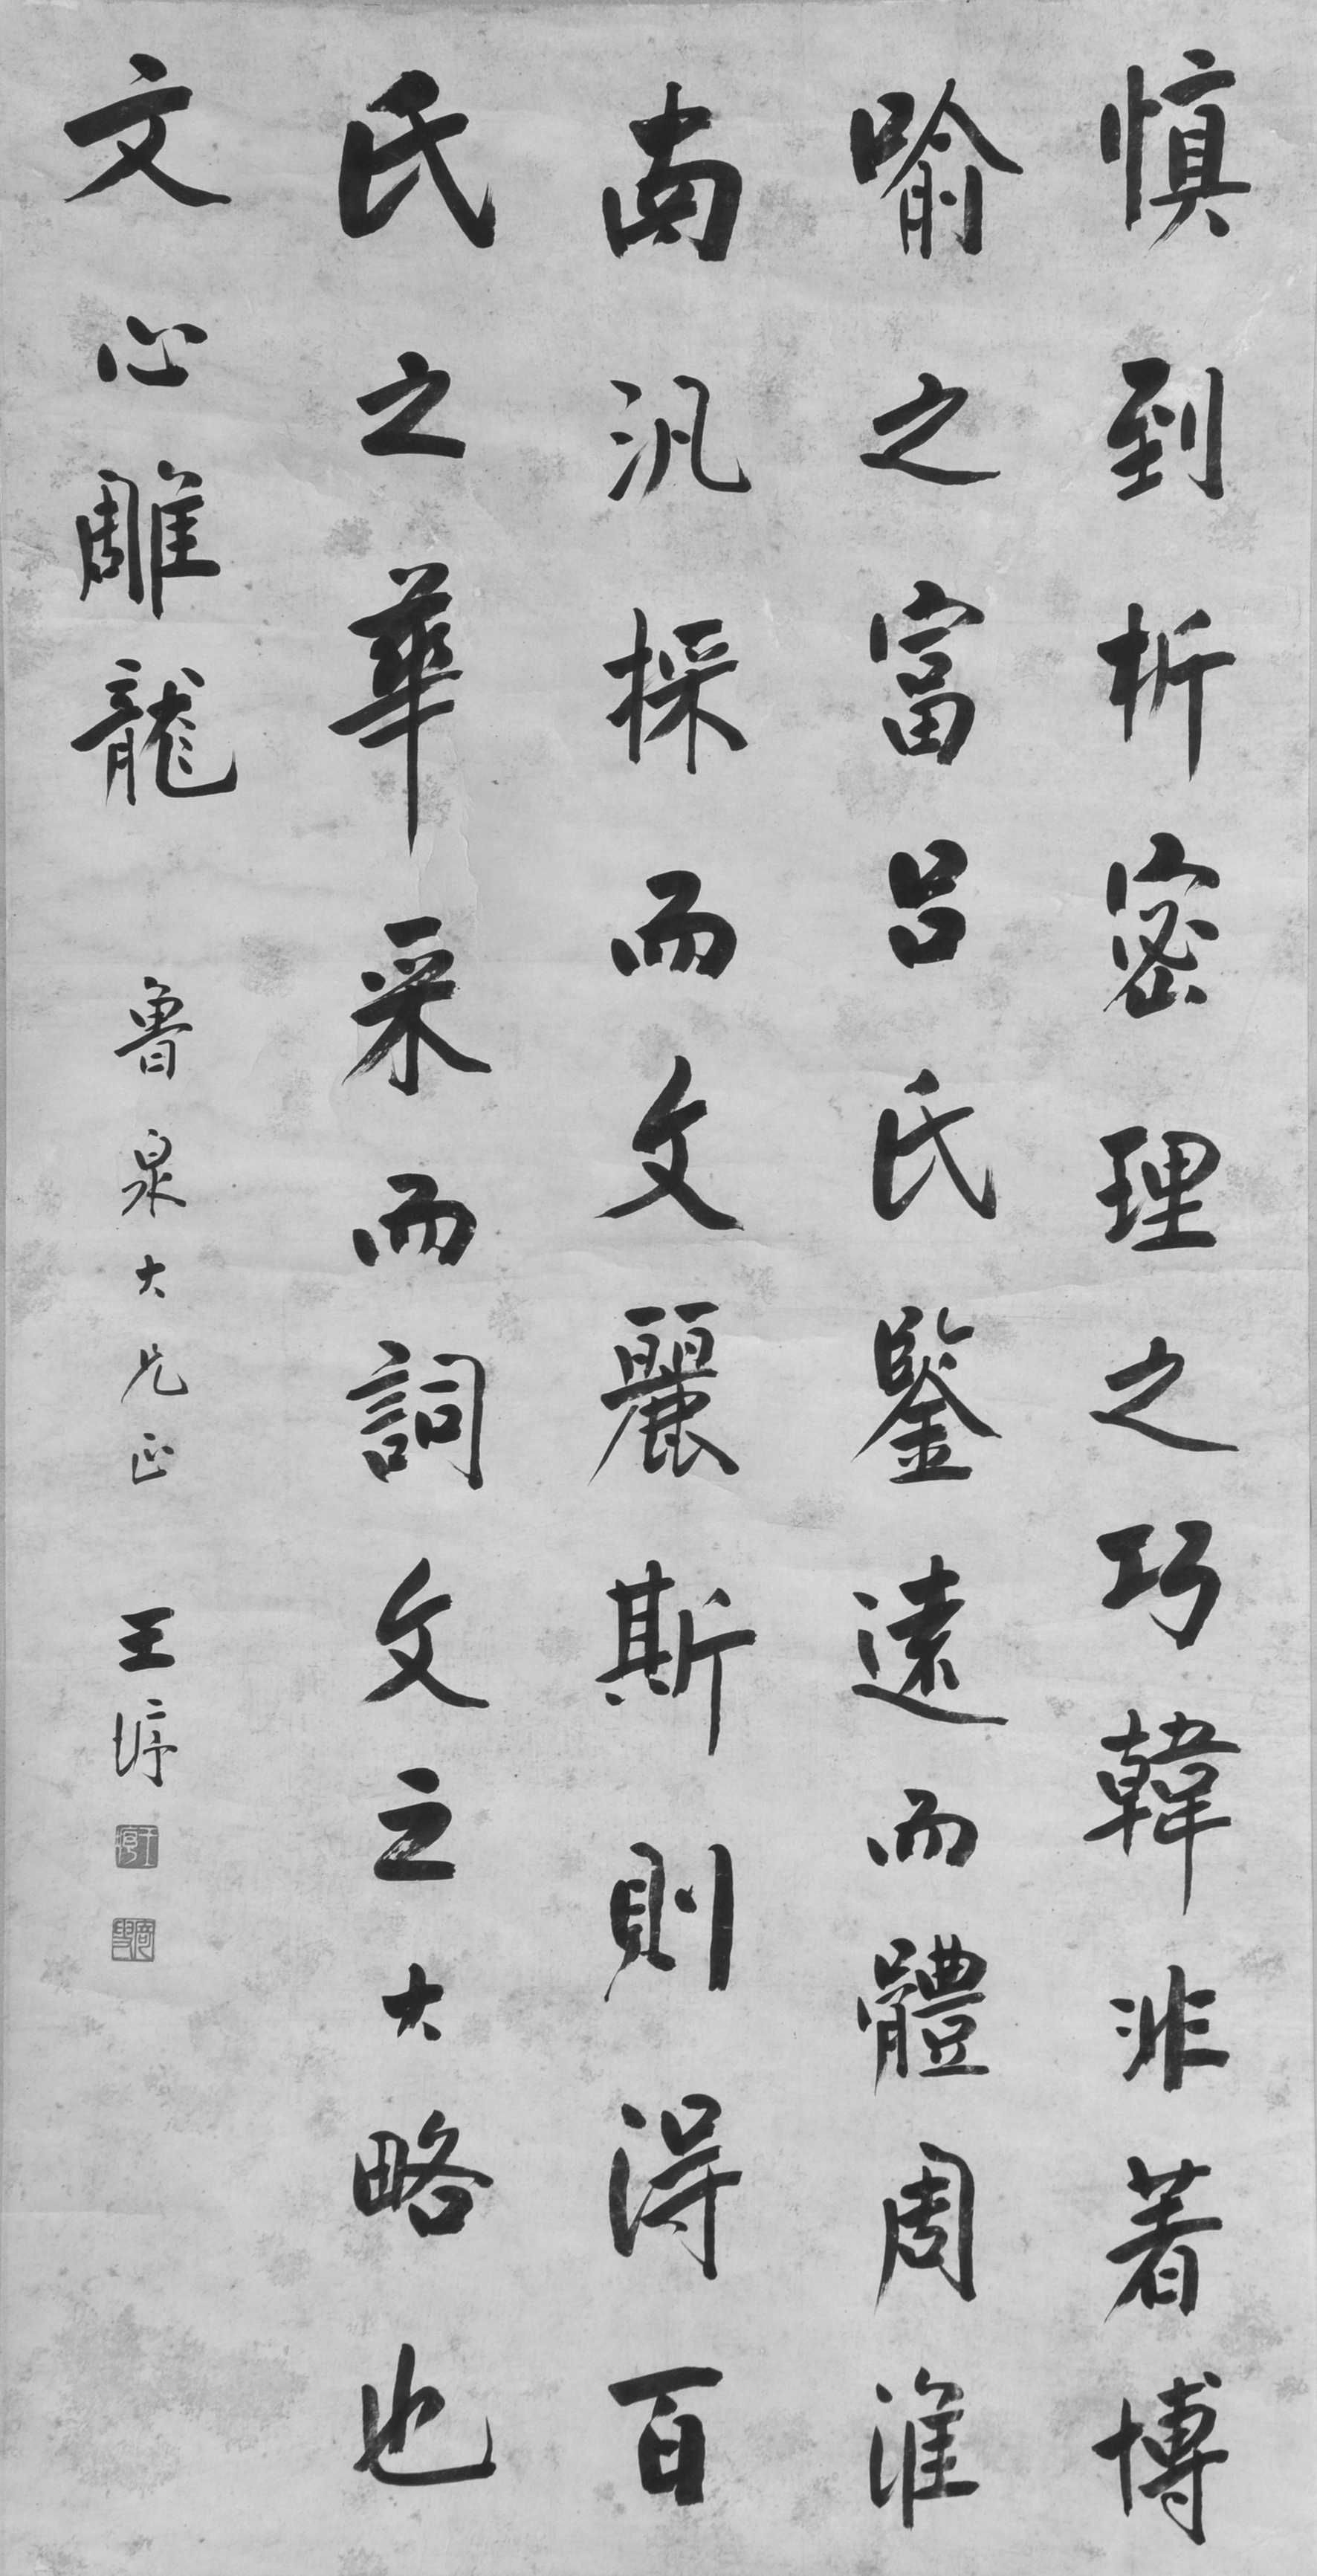 慎到析密理之巧韓非著博
喻之富呂氏鑒遠而體周淮
南汎採而文麗斯則得百
氏之華采而詞文之大略也
文心雕龍 魯泉大兄正 王